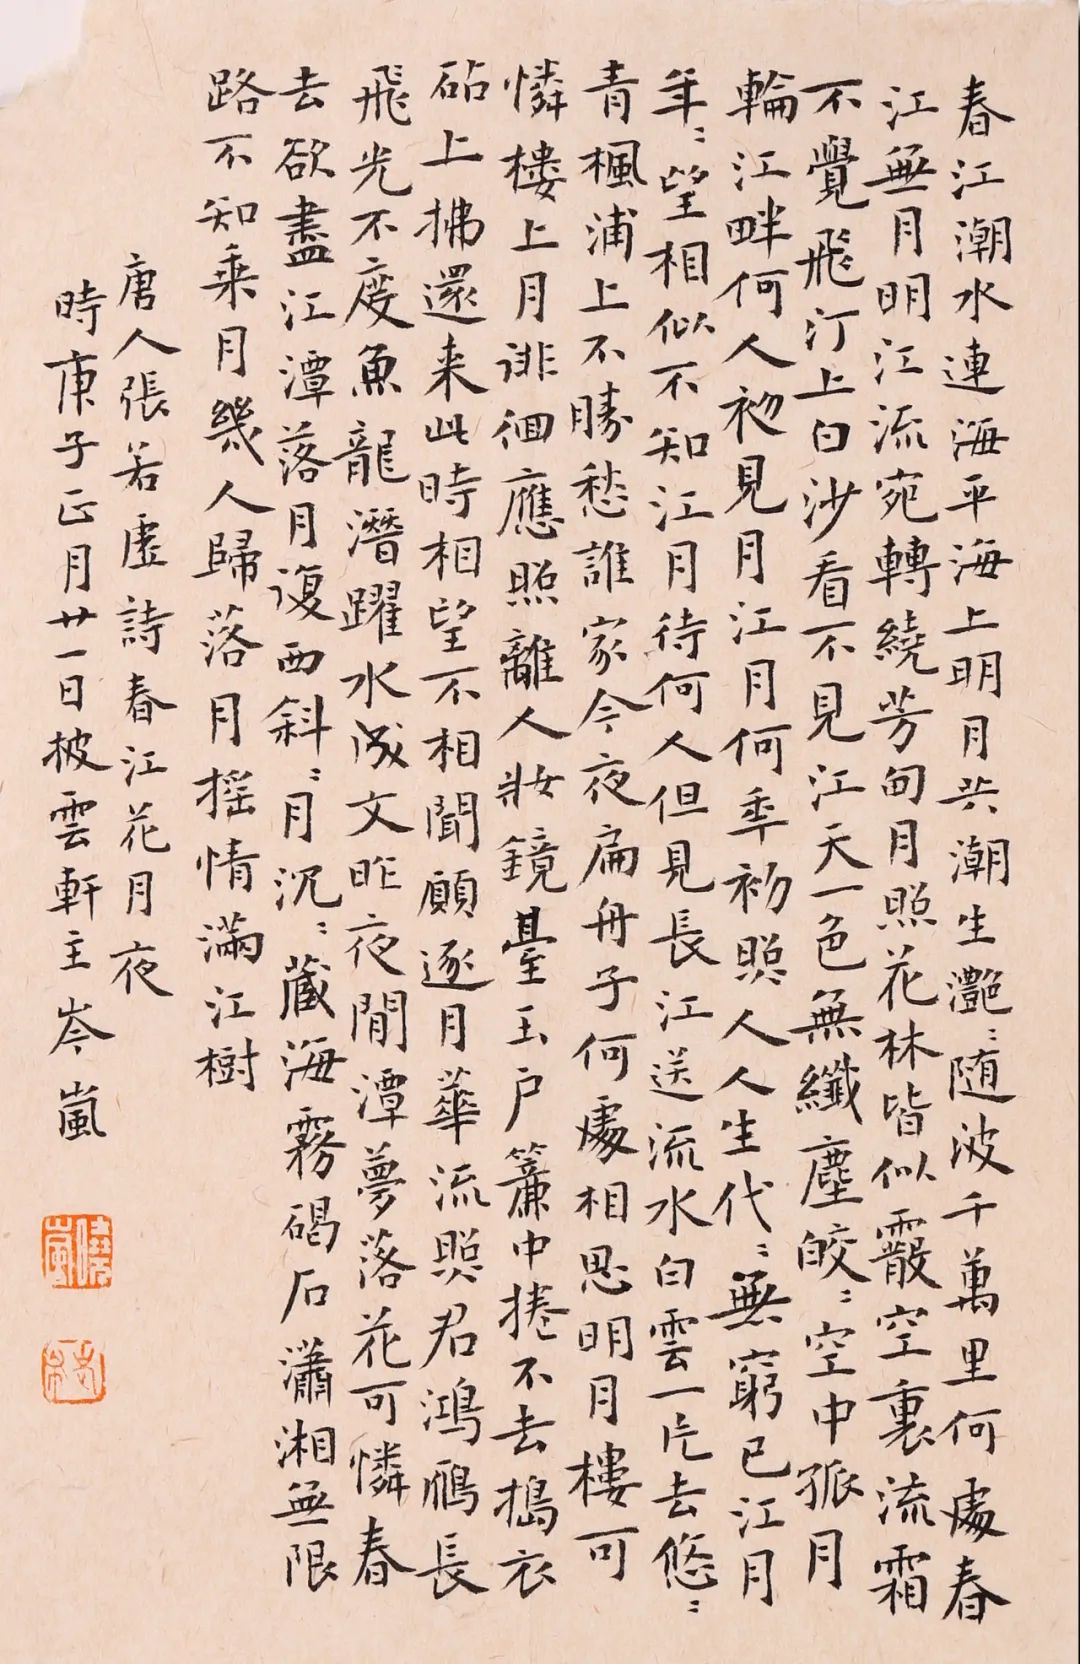 春江潮水連海平海上明月共潮生灧〻随波千萬里何處春
江無月明江流宛轉繞芳甸月照花林皆似霰空裏流霜
不覺飛汀上白沙看不見江天一色無纖塵皎〻空中孤月
輪江畔何人初見月江月何年初照人人生代〻無窮已江月
年〻望相似不知江月待何人但見長江送流水白雲一片去悠〻
青楓浦上不勝愁誰家今夜扁舟子何處相思明月樓可
憐樓上月徘徊應照離人妝鏡臺玉户簾中捲不去搗衣
砧上拂還来此時相望不相聞願逐月華流照君鴻鴈長
飛光不度魚龍潛躍水成文昨夜閒潭夢落花可憐春
去欲盡江潭落月復西斜〻月沉〻藏海霧碣石瀟湘無限
路不知乘月幾人歸落月摇情滿江樹
唐人張若虛詩春江花月夜
時庚子正月廿一日披雲軒主岑嵐